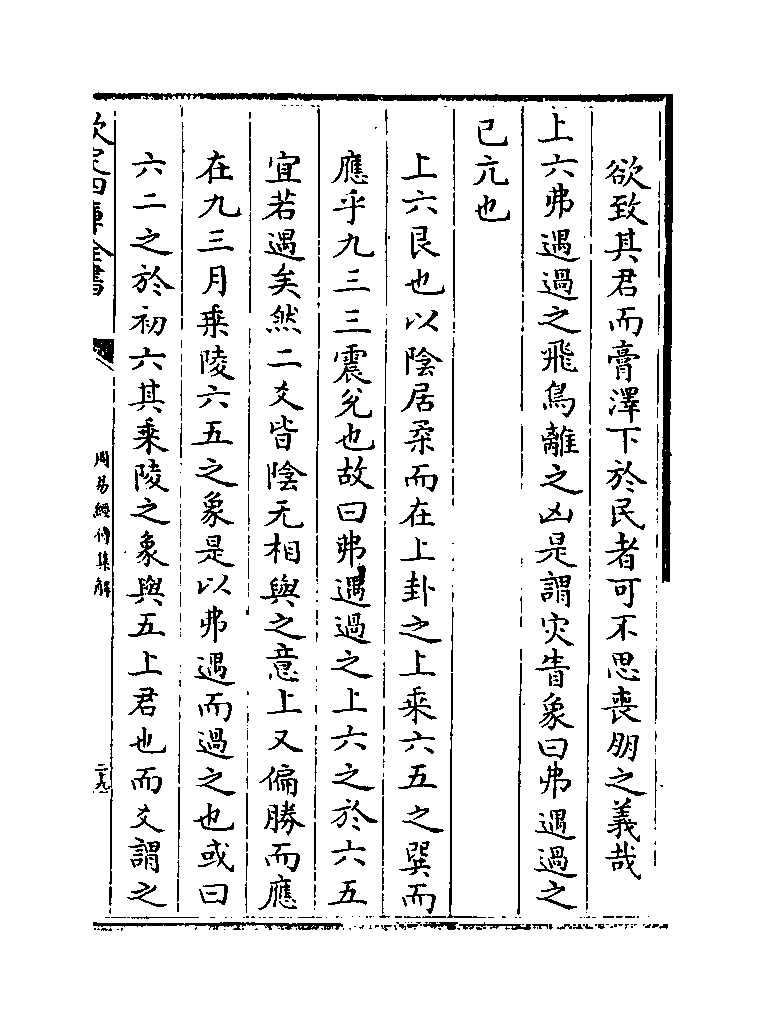 欲致其君而膏澤下於民者可不思喪朋之義哉
上六弗遇過之飛鳥離之凶是謂灾眚象曰弗遇過之
已亢也
上六艮也以陰居柔而在上卦之上乘六五之巽而
應乎九三三震兊也故曰弗遇過之上六之於六五
宜若遇矣然二爻皆陰无相與之意上又偏勝而應
在九三月乗陵六五之象是以弗遇而過之也或曰
六二之於初六其乗陵之象與五上君也而爻謂之
欽定四庫全書
周易經傳集解
二十九